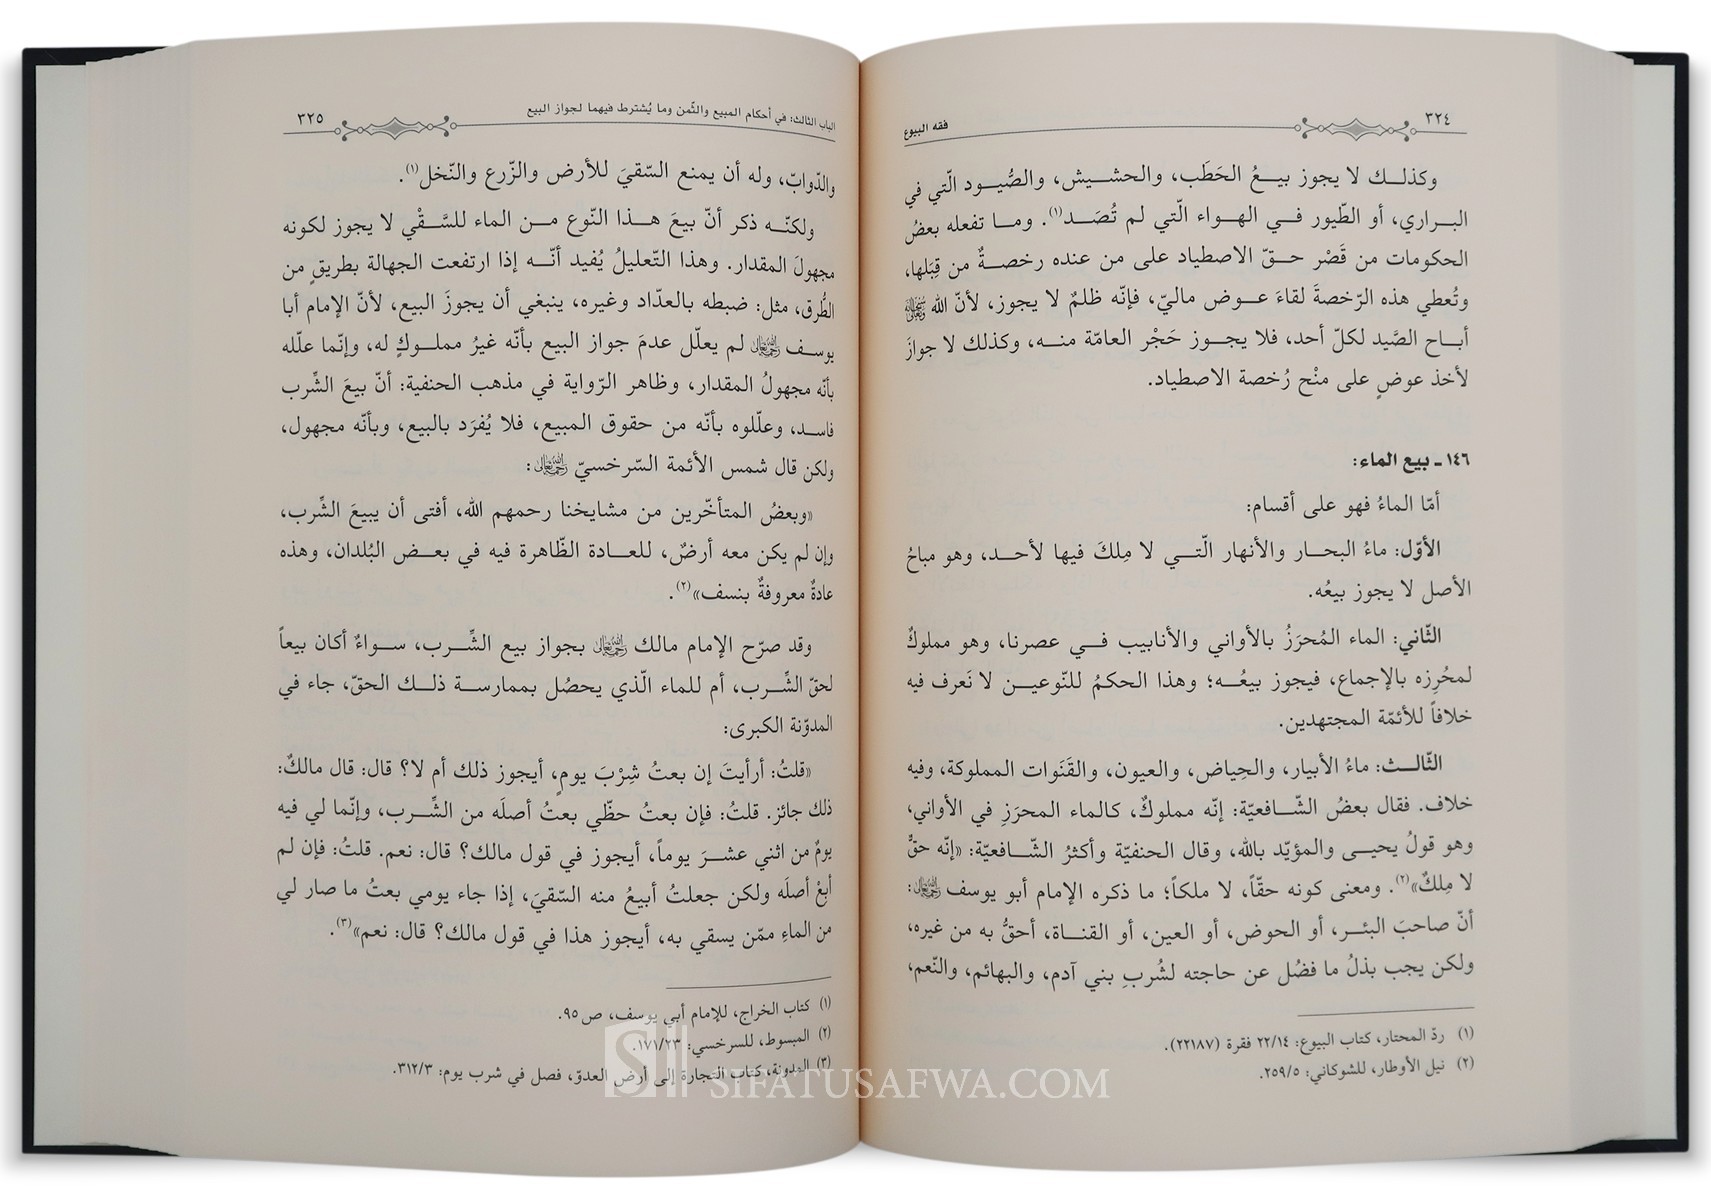 ٣٢٤
فقه البيوع
وكذلك لا يجوز بيعُ الحَطَب، والحشيش، والصُّيود الّتي في
البراري، أو الطّيور في الهواء الّتي لم تُصَد(١). وما تفعله بعضُ
الحكومات من قَصْر حقّ الاصطياد على من عنده رخصةٌ من قِبَلها،
وتُعطي هذه الرّخصةَ لقاءَ عوض ماليّ، فإنّه ظلمٌ لا يجوز، لأنّ الله ﷾
أباح الصَّيد لكلّ أحد، فلا يجوز حَجْر العامّة منه، وكذلك لا جوازَ
لأخذ عوضٍ على منْح رُخصة الاصطياد.
١٤٦ ـ بيع الماء:
أمّا الماءُ فهو على أقسام:
الأوّل: ماءُ البحار والأنهار الّتي لا مِلكَ فيها لأحد، وهو مباحُ
الأصل لا يجوز بيعُه.
الثّاني: الماء المُحرَزُ بالأواني والأنابيب في عصرنا، وهو مملوكٌ
لمحُرِزه بالإجماع، فيجوز بيعُه؛ وهذا الحكمُ للنّوعين لا نَعرف فيه
خلافاً للأئمّة المجتهدين.
الثّالث: ماءُ الأبيار، والحِياض، والعيون، والقَنَوات المملوكة، وفيه
خلاف. فقال بعضُ الشّافعيّة: إنّه مملوكٌ، كالماء المحرَزِ في الأواني،
وهو قولُ يحيى والمؤيّد بالله، وقال الحنفيّة وأكثرُ الشّافعيّة: «إنّه حقٌّ
لا مِلكٌ»(٢). ومعنى كونه حقّاً، لا ملكاً؛ ما ذكره الإمام أبو يوسف رحمه الله تعالى:
أنّ صاحبَ البئر، أو الحوض، أو العين، أو القناة، أحقُّ به من غيره،
ولكن يجب بذلُ ما فضُل عن حاجته لشُربِ بني آدم، والبهائم، والنّعم،
(١) ردّ المحتار، كتاب البيوع: ٢٢/١٤ فقرة (٢٢١٨٧).
(٢) نيل الأوطار، للشوكاني: ٢٥٩/٥.
الباب الثالث: في أحكام المبيع والثّمن وما يُشترط فيهما لجواز البيع
٣٢٥
والدّوابّ، وله أن يمنع السّقيَ للأرض والزّرع والنّخل(١).
ولكنّه ذكر أنّ بيعَ هذا النّوع من الماء للسَّقْي لا يجوز لكونه
مجهولَ المقدار. وهذا التّعليلُ يُفيد أنّه إذا ارتفعت الجهالة بطريقٍ من
الطُّرق، مثل: ضبطه بالعدّاد وغيره، ينبغي أن يجوزَ البيع، لأنّ الإمام أبا
يوسف رحمه الله تعالى لم يعلّل عدمَ جواز البيع بأنه غيرُ مملوكٍ له، وإنّما علّله
بأنّه مجهولُ المقدار، وظاهر الرّواية في مذهب الحنفية: أنّ بيعَ الشِّرب
فاسد، وعلّلوه بأنّه من حقوق المبيع، فلا يُفرَد بالبيع، وبأنّه مجهول،
ولكن قال شمس الأئمة السّرخسيّ رحمه الله تعالى:
«وبعضُ المتأخّرين من مشايخنا رحمهم الله، أفتى أن يبيعَ الشِّرب،
وإن لم يكن معه أرضٌ، للعادة الظّاهرة فيه في بعض البُلدان، وهذه
عادةٌ معروفةٌ بنسف»(٢).
وقد صرّح الإمام مالك رحمه الله تعالى بجواز بيع الشِّرب، سواءٌ أكان بيعاً
لحقّ الشِّرب، أم للماء الّذي يحصُل بممارسة ذلك الحقّ، جاء في
المدوّنة الكبرى:
«قلتُ: أرأيتَ إن بعتُ شِرْبَ يومٍ، أيجوز ذلك أم لا؟ قال: قال مالكٌ:
ذلك جائز. قلتُ: فإن بعتُ حظّي بعتُ أصلَه من الشِّرب، وإنّما لي فيه
يومٌ من اثني عشرَ يوماً، أيجوز في قول مالك؟ قال: نعم. قلتُ: فإن لم
أبعْ أصلَه ولكن جعلتُ أبيعُ منه السّقيَ، إذا جاء يومي بعتُ ما صار لي
من الماءِ ممّن يسقي به، أيجوز هذا في قول مالك؟ قال: نعم»(٣).
(١) كتاب الخراج، للإمام أبي يوسف، ص٩٥.
(٢) المبسوط، للسرخسي: ١٧١/٢٣.
(٣) المدونة، كتاب التجارة إلى أرض العدوّ، فصل في شرب يوم: ٣١٢/٣.
SIFATUSAFWA.COM